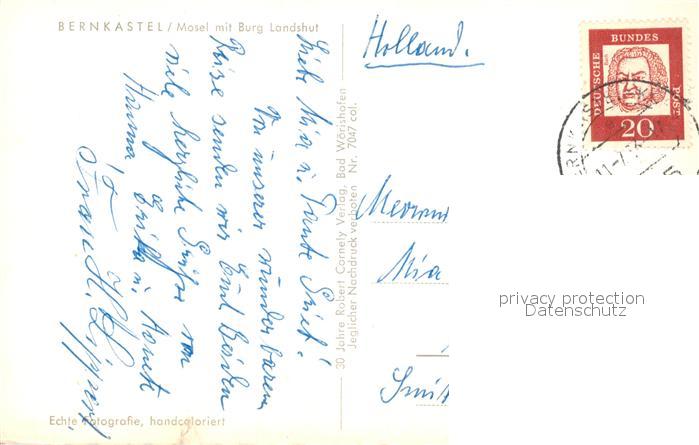 BERNKASTEL / Mosel mit Burg Landshut
Liebe Mia u. Tante Griet!
Von unserer wunderbaren
Reise senden wir Euch beiden
viele herzliche Grüße von
Hanna, Erika u. Agnete
u. Frau H.
Echte Fotografie, handcoloriert
30 Jahre Robert Cornely Verlag, Bad Wörishofen
Jeglicher Nachdruck verboten Nr. 7047 col.
Holland.
DEUTSCHE
BUNDES
POST
20
11.-7.
Mevrouw
Mia
Smit
privacy protection
Datenschutz